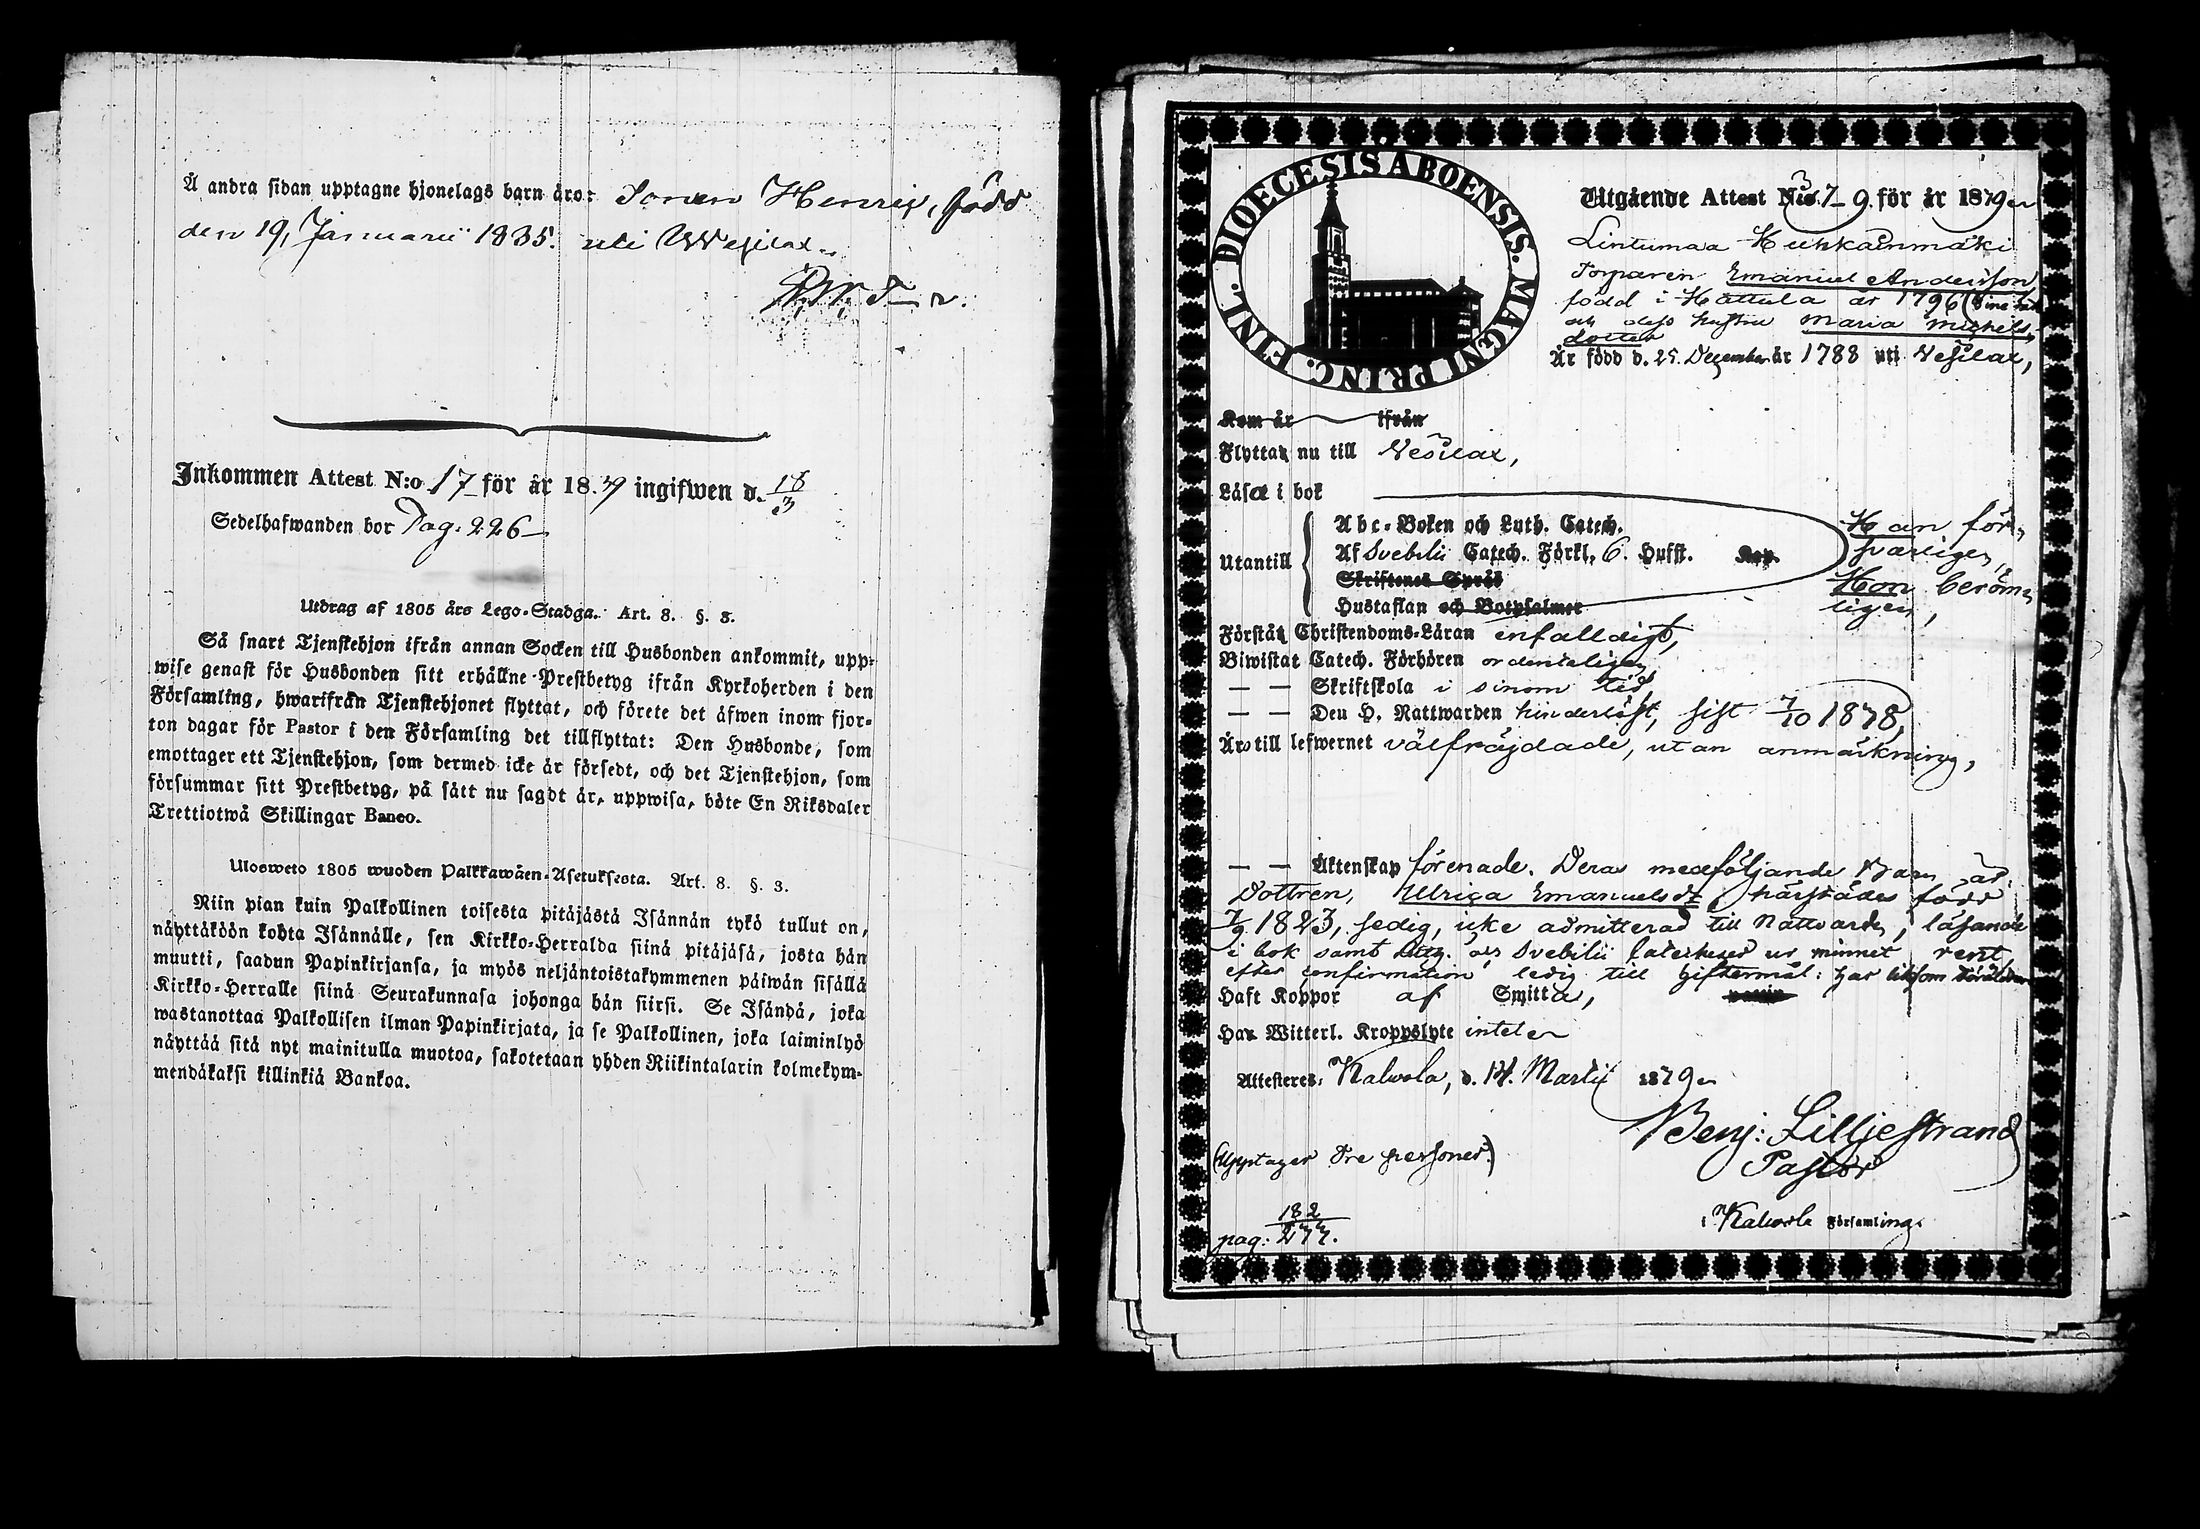 Å andra sidan upptagne hjonelags barn äro: Sonen Henric, född
den 19, Januarii 1835. uti Wesilax.
Inkommen Attest N:o 17 för år 18.39 ingifwen d. 18/3
Sedelhafwanden bor Pag. 226
Utdrag af 1805 års Lego-Stadga. Art. 8. §. 3.
Så snart Tjenstehjon ifrån annan Socken till Husbonden ankommit, upp-
wise genast för Husbonden sitt erhållne Prestbetyg ifrån Kyrkoherden i den
Församling, hwarifrån Tjenstehjonet flyttat, och förete det äfwen inom fjor-
ton dagar för Pastor i den Församling det tillflyttat: Den Husbonde, som
emottager ett Tjenstehjon, som dermed icke är försedt, och det Tjenstehjon, som
försummar sitt Prestbetyg, på sätt nu sagdt är, uppwisa, böte En Riksdaler
Trettiotwå Skillingar Banco.
Ulosweto 1805 wuoden Palkkawäen-Asetuksesta. Art. 8. §. 3.
Niin pian kuin Palkollinen toisesta pitäjästä Isännän tykö tullut on,
näyttäköön kohta Isännälle, sen Kirkko-Herralda siinä pitäjäsä, josta hän
muutti, saadun Papinkirjansa, ja myös neljäntoistakymmenen päiwän sisällä
Kirkko-Herralle siinä Seurakunnasa johonga hän siirsi. Se Isändä, joka
wastanottaa Palkollisen ilman Papinkirjata, ja se Palkollinen, joka laiminlyö
näyttää sitä nyt mainitulla muotoa, sakotetaan yhden Riikintalarin kolmekym-
mendäkaksi killinkiä Bankoa.
DIOECESIS ÅBOENSIS. MAGNI PRINC. FINL.
Utgående Attest N:o 7 9 för år 1839
Lintumaa Huhkainmäki
Torparen Emanuel Andersson
född i Hattula år 1796
och dess hustru Maria Michels-
dotter
Är född d. 25. December år 1788 uti Vesilax,
Kom år ifrån
Flyttat nu till Vesilax,
Läsa i bok
Utantill
Abc-Boken och Luth. Catech.
Af Svebilii Catech. Förkl. 6. Hufst. Kap.
Skriftenes Språk
Hustaflan och Botpsalmer
Han för-
svarligen,
Hon beröm-
ligen,
Förstå Christendoms-Läran enfalldigt,
Biwistat Catech. Förhören ordenteligen
— — Skriftskola i sinom tid,
— — Den H. Nattwarden hinderlöst, sist 7/10 1838,
Äro till lefwernet välfräjdade, utan anmärkning,
— — Äktenskap förenade. Deras medföljande Barn är:
Dottren, Ulrica Emanuelsdr härstädes född
7/9 1823, ledig, icke admitterad till Nattvarden, läsande
i bok samt Luth. och Svebilii Catecheser ur minnet rent,
efter confirmation ledig till giftermål: har liksom Föräldrarne
Haft Koppor af Smitta,
Har Witterl. Kroppslyte intet
Attesteres: Kalvola, d. 14. Martii 1839
Benj: Lilljestrand
Pastor
(Upptager Tre personer.)
i Kalvola Församling.
pag: 182/277.